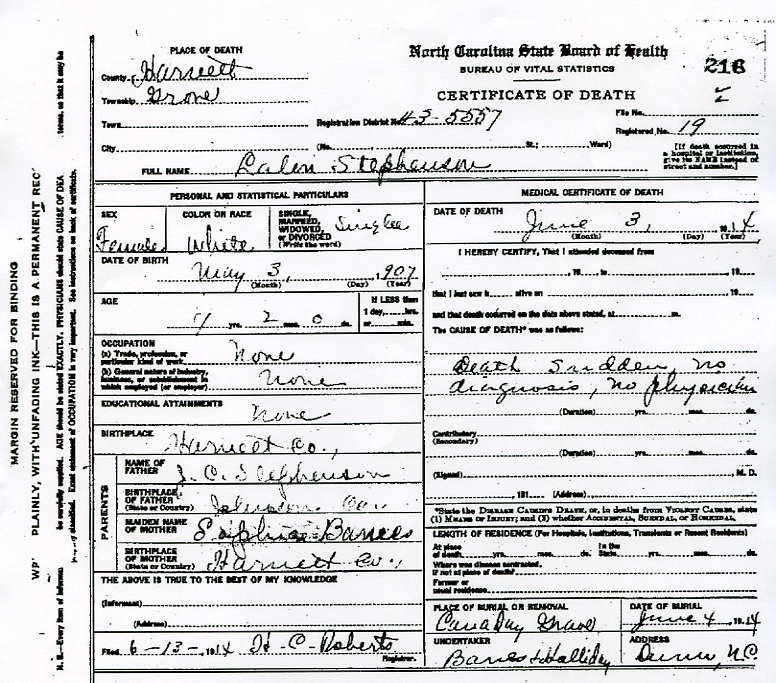 PLACE OF DEATH
North Carolina State Board of Health
BUREAU OF VITAL STATISTICS
216
County of Harnett
CERTIFICATE OF DEATH
Township Grove
Town
Registration District No. 43-5557
File No.
Registered No. 19
City
(No. St.; Ward)
[If death occurred in a hospital or institution, give its NAME instead of street and number.]
FULL NAME Stephenson
PERSONAL AND STATISTICAL PARTICULARS
SEX
Female
COLOR OR RACE
White
SINGLE, MARRIED, WIDOWED, or DIVORCED (Write the word)
Single
DATE OF BIRTH
May 3, 1907
(Month) (Day) (Year)
AGE
yrs. 2 mos. 0 ds.
If LESS than 1 day, hrs. or min.
OCCUPATION
(a) Trade, profession, or particular kind of work
None
(b) General nature of industry, business, or establishment in which employed (or employer)
None
EDUCATIONAL ATTAINMENTS
None
BIRTHPLACE
Harnett Co.,
PARENTS
NAME OF FATHER
J. C. Stephenson
BIRTHPLACE OF FATHER (State or Country)
Johnston Co.
MAIDEN NAME OF MOTHER
Barnes
BIRTHPLACE OF MOTHER (State or Country)
Harnett Co.,
THE ABOVE IS TRUE TO THE BEST OF MY KNOWLEDGE
(Informant)
(Address)
Filed 6-13-, 1914 H-C-Roberts
Registrar.
MEDICAL CERTIFICATE OF DEATH
DATE OF DEATH
June 3, 1914
(Month) (Day) (Year)
I HEREBY CERTIFY, That I attended deceased from
, 19 to , 19
that I last saw h alive on , 19
and that death occurred on the date above stated, at m.
The CAUSE OF DEATH* was as follows:
Death Sudden, no
diagnosis, no physician
(Duration) yrs. mos. ds.
Contributory
(Secondary)
(Duration) yrs. mos. ds.
(Signed) M. D.
, 191 (Address)
*State the DISEASE CAUSING DEATH, or, in deaths from VIOLENT CAUSES, state
(1) MEANS OF INJURY; and (2) whether ACCIDENTAL, SUICIDAL, or HOMICIDAL.
LENGTH OF RESIDENCE (For Hospitals, Institutions, Transients or Recent Residents)
At place of death yrs. mos. ds. In the State yrs. mos. ds.
Where was disease contracted, if not at place of death?
Former or usual residence
PLACE OF BURIAL OR REMOVAL
Canaday Grave
DATE OF BURIAL
June 4, 1914
UNDERTAKER
Barnes & Holliday
ADDRESS
Dunn, N.C.
MARGIN RESERVED FOR BINDING
PLAINLY, WITH UNFADING INK—THIS IS A PERMANENT REC
N. B.—Every item of informa be carefully supplied. AGE should be stated EXACTLY. PHYSICIANS should state CAUSE OF DEA terms, so that it may be
classified. Exact statement of OCCUPATION is very important. See instructions on back of certificate.